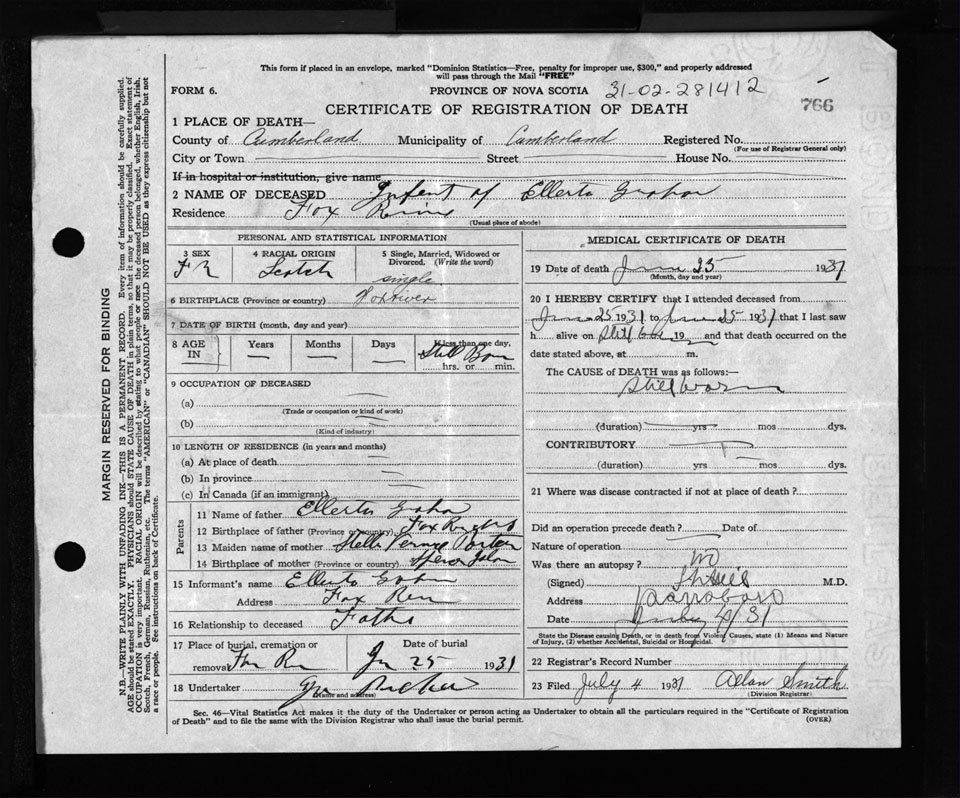 This form if placed in an envelope, marked "Dominion Statistics—Free, penalty for improper use, $300," and properly addressed
will pass through the Mail "FREE"
FORM 6. PROVINCE OF NOVA SCOTIA 31-02-281412 766
CERTIFICATE OF REGISTRATION OF DEATH
1 PLACE OF DEATH—
County of Cumberland Municipality of Cumberland Registered No.
(For use of Registrar General only)
City or Town Street House No.
If in hospital or institution, give name
2 NAME OF DECEASED Infent of Ellerto
Residence Fox
(Usual place of abode)
PERSONAL AND STATISTICAL INFORMATION
3 SEX 4 RACIAL ORIGIN 5 Single, Married, Widowed or
Divorced. (Write the word)
Scotch single
6 BIRTHPLACE (Province or country)
7 DATE OF BIRTH (month, day and year)
8 AGE IN Years Months Days If less than one day,
Still Born
hrs. or min.
9 OCCUPATION OF DECEASED
(a)
(Trade or occupation or kind of work)
(b)
(Kind of industry)
10 LENGTH OF RESIDENCE (in years and months)
(a) At place of death
(b) In province
(c) In Canada (if an immigrant)
Parents
11 Name of father
12 Birthplace of father (Province or country) Fox
13 Maiden name of mother
14 Birthplace of mother (Province or country)
15 Informant's name Ellerto
Address Fox
16 Relationship to deceased Father
17 Place of burial, cremation or Date of burial
removal 25 1931
18 Undertaker
(Name and address)
MEDICAL CERTIFICATE OF DEATH
19 Date of death June 25 1931
(Month, day and year)
20 I HEREBY CERTIFY that I attended deceased from
June 25 1931 to June 25 1931 that I last saw
h alive on 19 and that death occurred on the
date stated above, at m.
The CAUSE of DEATH was as follows:—
Still born
(duration) yrs mos dys.
CONTRIBUTORY
(duration) yrs mos dys.
21 Where was disease contracted if not at place of death?
Did an operation precede death? Date of
Nature of operation
Was there an autopsy? no
(Signed) M.D.
Address Parrsboro
Date July 4/31
State the Disease causing Death, or in death from Violent Causes, state (1) Means and Nature
of Injury, (2) whether Accidental, Suicidal or Homicidal.
22 Registrar's Record Number
23 Filed July 4 1931 Allan Smith
(Division Registrar)
Sec. 46—Vital Statistics Act makes it the duty of the Undertaker or person acting as Undertaker to obtain all the particulars required in the "Certificate of Registration
of Death" and to file the same with the Division Registrar who shall issue the burial permit. (OVER)
MARGIN RESERVED FOR BINDING
N.B.—WRITE PLAINLY WITH UNFADING INK—THIS IS A PERMANENT RECORD. Every item of information should be carefully supplied.
AGE should be stated EXACTLY. PHYSICIANS should STATE CAUSE OF DEATH in plain terms, so that it may be properly classified. Exact statement of
OCCUPATION is very important. RACIAL ORIGIN will be described by stating to what people or race the deceased person belonged, whether English, Irish,
Scotch, French, German, Russian, Ruthenian, etc. The terms "AMERICAN" or "CANADIAN" SHOULD NOT BE USED as they express citizenship but not
a race or people. See instructions on back of Certificate.